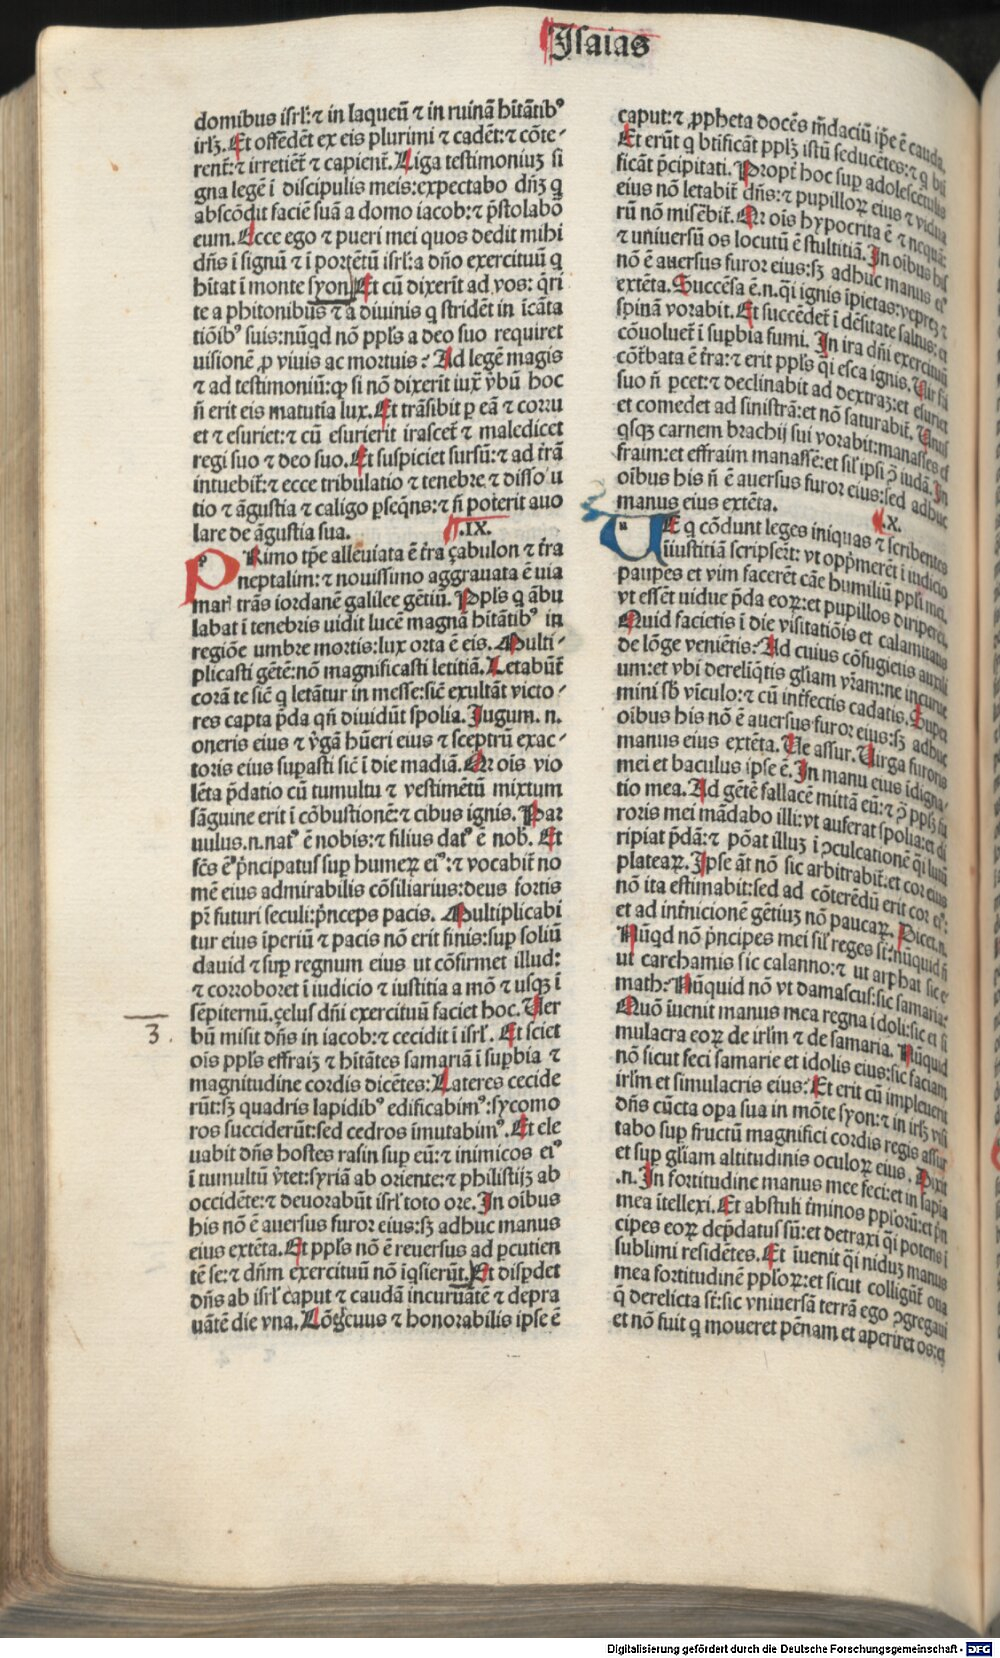 Isaias
domibus isrl̃:⁊ in laqueũ ⁊ in ruinã hĩtãtibꝰ
irlꝫ. Et offẽdẽt ex eis plurimi ⁊ cadẽt:⁊ cõte⸗
rent̃:⁊ irretiẽt̃ ⁊ capient̃. Liga testimoniuꝫ si
gna legẽ ĩ discipulis meis:expectabo dñꝫ q
abscõdit faciẽ suã a domo iacob:⁊ p̃stolabõ
eum. Ecce ego ⁊ pueri mei quos dedit mihi
dñs ĩ signũ ⁊ ĩ portẽtũ isrl̃:a dño exercituũ q
hĩtat ĩ monte syon. Et cũ dixerit ad vos: q̃ri
te a phitonibus ⁊ a diuinis q stridẽt in ĩcãta
tiõibꝰ suis:nũqd nõ ppl̃s a deo suo requiret
uisionẽ ꝓ viuis ac mortuis? Ad legẽ magis
⁊ ad testimoniũ:ꝙ si nõ dixerit iux̃ v̾bũ hoc
ñ erit eis matutia lux. Et trãsibit ꝑ eã ⁊ corru
et ⁊ esuriet:⁊ cũ esurierit irascet̃ ⁊ maledicet
regi suo ⁊ deo suo. Et suspiciet sursũ:⁊ ad t̃rã
intuebit̃:⁊ ecce tribulatio ⁊ tenebre ⁊ disso u
tio ⁊ ãgustia ⁊ caligo ꝑseq̃ns:⁊ ñ poterit auo
lare de ãgustia sua. .IX.
PRimo tp̃e alleuiata ẽ t̃ra çabulon ⁊ t̃ra
neptalim:⁊ nouissimo aggrauata ẽ uia
mari trãs iordanẽ galilee gẽtiũ. Ppl̃s q ãbu
labat ĩ tenebris uidit lucẽ magnã hĩtãtibꝰ in
regiõe umbre mortis:lux orta ẽ eis. Multi⸗
plicasti gẽtẽ:nõ magnificasti letitiã. Letabũt̃
corã te sic̃ q letãtur in messe:sic̃ exultãt victo⸗
res capta p̃da qñ diuidũt spolia. Jugum. n.
oneris eius ⁊ v̾gã hũeri eius ⁊ sceptrũ exac⸗
toris eius suꝑasti sic̃ ĩ die madiã. Qr ois vio
lẽta p̃datio cũ tumultu ⁊ vestimẽtũ mixtum
sãguine erit ĩ cõbustionẽ:⁊ cibus ignis. Par
uulus.n.natꝰ ẽ nobis:⁊ filius datꝰ ẽ nob̃. Et
fc̃s ẽ p̃ncipatus suꝑ humeꝝ eiꝰ:⁊ vocabit̃ no
mẽ eius admirabilis cõsiliarius:deus fortis
pr̃ futuri seculi:p̃nceps pacis. Multiplicabi
tur eius ĩperiũ ⁊ pacis nõ erit finis:suꝑ soliũ
dauid ⁊ suꝑ regnum eius ut cõfirmet illud:
⁊ corroboret ĩ iudicio ⁊ iustitia a mõ ⁊ usqꝫ ĩ
sẽpiternũ.çelus dñi exercituũ faciet hoc. Ver
bũ misit dñs in iacob:⁊ cecidit ĩ isrl̃. Et sciet
3.
ois ppl̃s effraiꝫ ⁊ hĩtãtes samariã ĩ suꝑbia ⁊
magnitudine cordis dicẽtes: Lateres cecide
rũt:sꝫ quadris lapidibꝰ edificabimꝰ:sycomo
ros succiderũt:sed cedros ĩmutabimꝰ. Et ele
uabit dñs hostes rasin suꝑ eũ:⁊ inimicos eiꝰ
ĩ tumultũ v̾tet:syriã ab oriente:⁊ philistijꝫ ab
occidẽte:⁊ deuorabũt isrl̃ toto ore. In oĩbus
his nõ ẽ auersus furor eius:sꝫ adhuc manus
eius extẽta. Et ppl̃s nõ ẽ reuersus ad ꝑcutien
tẽ se:⁊ dñm exercituũ nõ ĩqsierũt. Et disꝑdet
dñs ab isrl̃ caput ⁊ caudã incuruãtẽ ⁊ depra
uãtẽ die vna. Lõgeuus ⁊ honorabilis ipse ẽ
caput:⁊ ꝓpheta docẽs mẽdaciũ ip̃e ẽ cauda.
Et erũt q btificãt pplꝫ istũ seducẽtes:⁊ q bti
ficãt p̃cipitati. Propt̃ hoc suꝑ adolescẽtulis
eius nõ letabit̃ dñs:⁊ pupilloꝝ eius ⁊ vidua
rũ nõ misẽbit̃. Qr ois hypocrita ẽ ⁊ nequã:
⁊ uniuersũ os locutũ ẽ stultitiã. In oĩbus his
nõ ẽ auersus furor eius:sꝫ adhuc manus eiꝰ
extẽta. Succẽsa ẽ.n.q̃i ignis ĩpietas:vepreꝫ ⁊
spinã vorabit. Et succẽdet̃ ĩ dẽsitate saltus:et
cõuoluet̃ ĩ suꝑbia fumi. In ira dñi exercituũ
cõt̃bata ẽ t̃ra:⁊ erit ppl̃s q̃i esca ignis. Vir fr̃i
suo ñ ꝑcet:⁊ declinabit ad dextraꝫ:et esuriet
et comedet ad sinistrã:et nõ saturabit̃. Unus
qsqꝫ carnem brachij sui vorabit:manasses ef
fraim:et effraim manassẽ:et sil̃ ipsi ꝯ iudã. In
oĩbus his ñ ẽ auersus furor eius:sed adhuc
manus eius extẽta. .X.
VE q cõdunt leges iniquas ⁊ scribentes
ĩiustitiã scripsert̃: vt opp̃merẽt ĩ iudicio
pauꝑes et vim facerẽt cãe humiliũ ppl̃i mei.
vt essẽt uidue p̃da eoꝝ:et pupillos diriperẽt.
Quid facietis ĩ die visitatiõis et calamitatis
de lõge veniẽtis? Ad cuius cõfugietis auxili
um:et vbi derelĩq̃tis gl̃iam vr̃am:ne incurue
mini sb̃ vĩculo:⁊ cũ int̃fectis cadatis. Super
oĩbus his nõ ẽ auersus furor eius:sꝫ adhuc
manus eius extẽta. Ve assur. Virga furoris
mei et baculus ipse ẽ. In manu eius ĩdigna⸗
tio mea. Ad gẽtẽ fallacẽ mittã eũ:⁊ ꝯ pplꝫ fu
roris mei mãdabo illi:vt auferat spolia:et di
ripiat p̃dã:⁊ põat illuꝫ ĩ ꝯculcationẽ q̃i lutũ
plateaꝝ. Ipse ãt nõ sic arbitrabit̃:et cor eius
nõ ita estimabit:sed ad cõterẽdũ erit cor eiꝰ:
et ad int̃nicionẽ gẽtiuꝫ nõ paucaꝝ. Dicet.n.
Nũqd nõ p̃ncipes mei sil̃ reges st̃:nũquid ñ
ut carchamis sic calanno:⁊ ut arphat sic e⸗
math? Nũquid nõ vt damascus:sic samaria?
Quõ ĩuenit manus mea regna idoli:sic et si
mulacra eoꝝ de irl̃m ⁊ de samaria. Nũquid
nõ sicut feci samarie et idolis eius:sic faciam
irl̃m et simulacris eius? Et erit cũ impleuerit
dñs cũcta oꝑa sua in mõte syon:⁊ in irlꝫ visi
tabo suꝑ fructũ magnifici cordis regis assur
et suꝑ gl̃iam altitudinis oculoꝝ eius. Dixit
.n. In fortitudine manus mee feci:et in sapia
mea ĩtellexi. Et abstuli t̃minos ppl̃orũ:et p̃n
cipes eoꝝ dep̃datus sũ:et detraxi q̃i potens ĩ
sublimi residẽtes. Et ĩuenit q̃i niduꝫ manus
mea fortitudinẽ ppl̃oꝝ:et sicut colligũt̃ oua
q̃ derelicta st̃:sic vniuersã terrã ego ꝯgregaui
et nõ fuit q moueret pẽnam et aperiret os:et
Digitalisierung gefördert durch die Deutsche Forschungsgemeinschaft - DFG